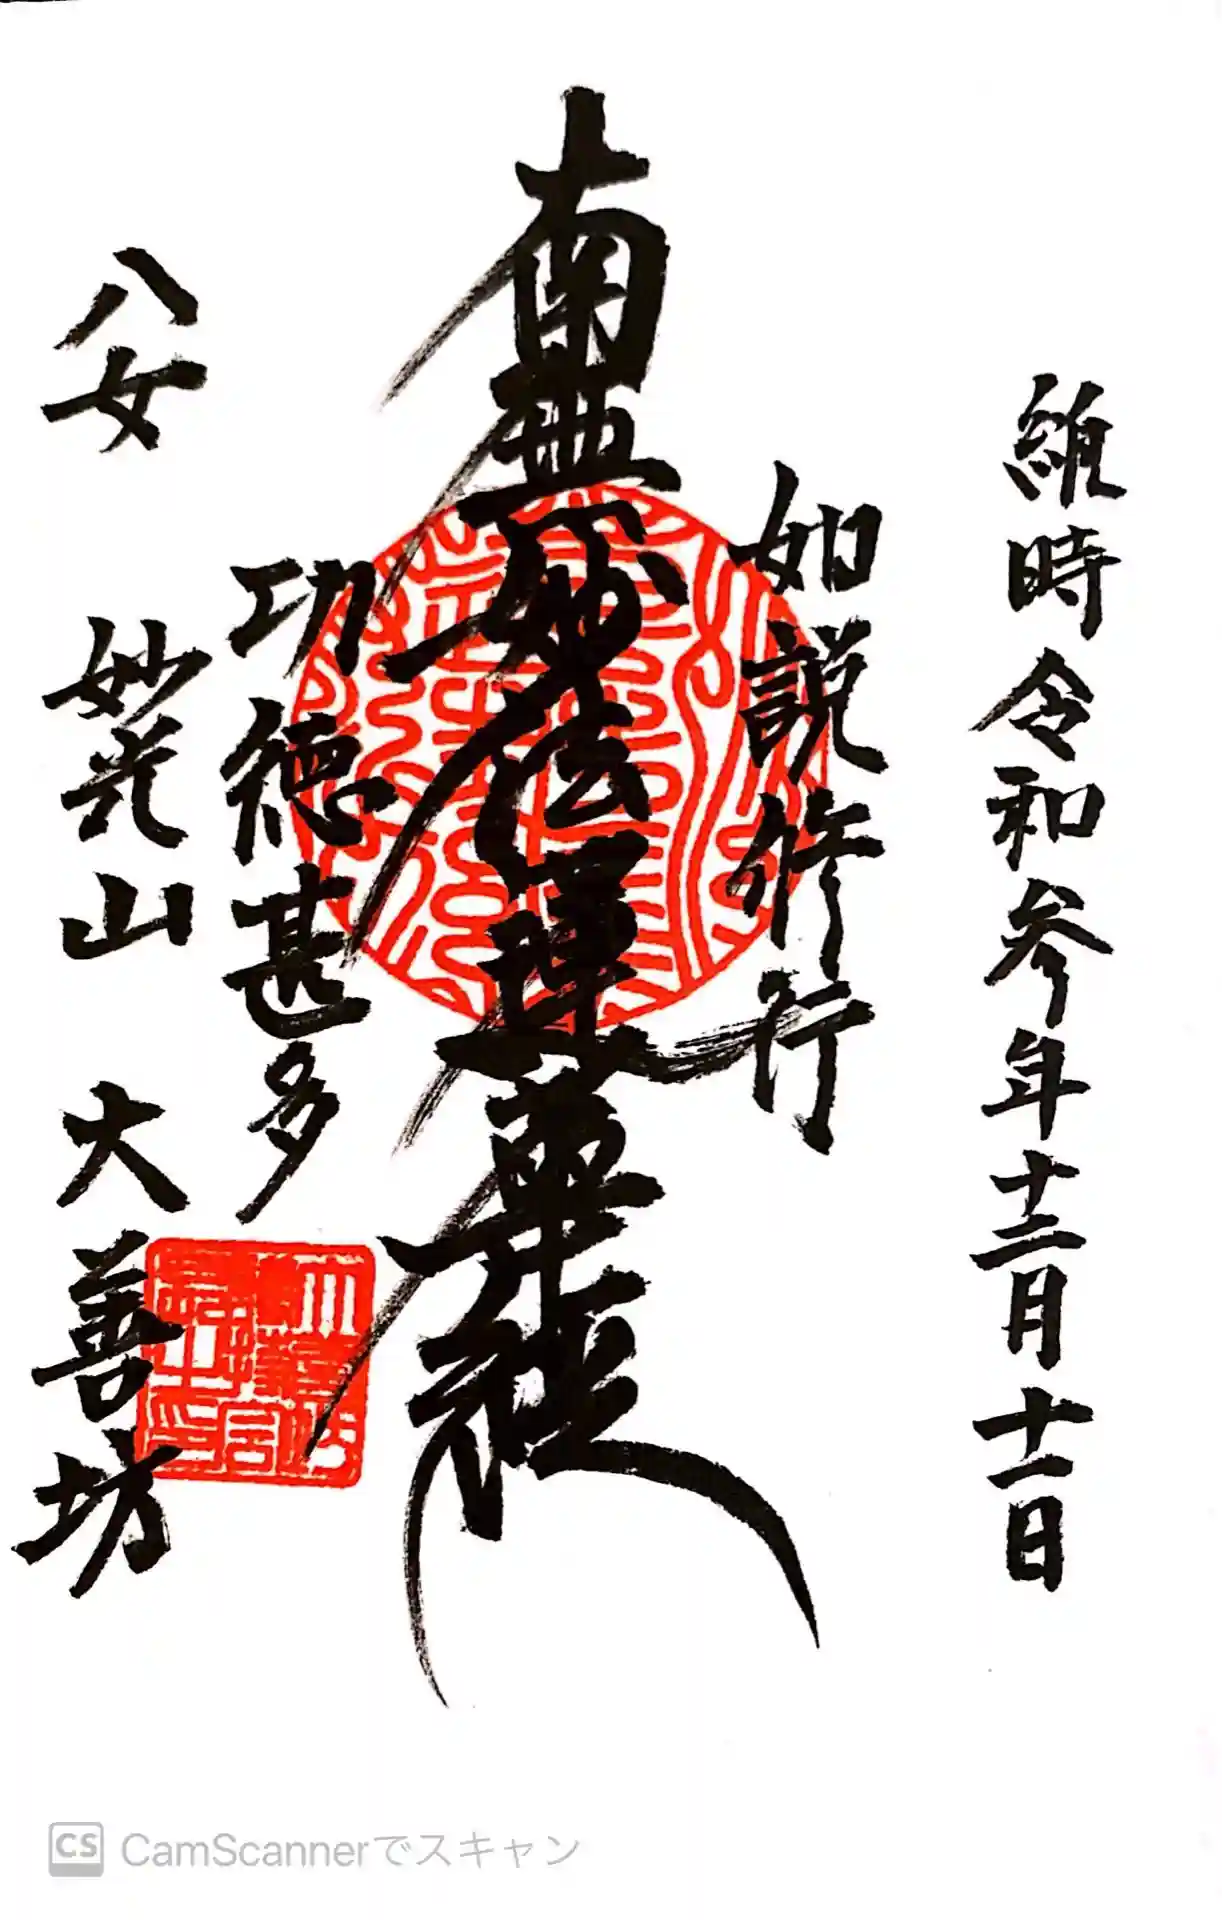 維時令和参年十二月十一日
如説修行
南無妙法蓮華経
功徳甚多
八女 妙光山 大善坊
CS CamScannerでスキャン